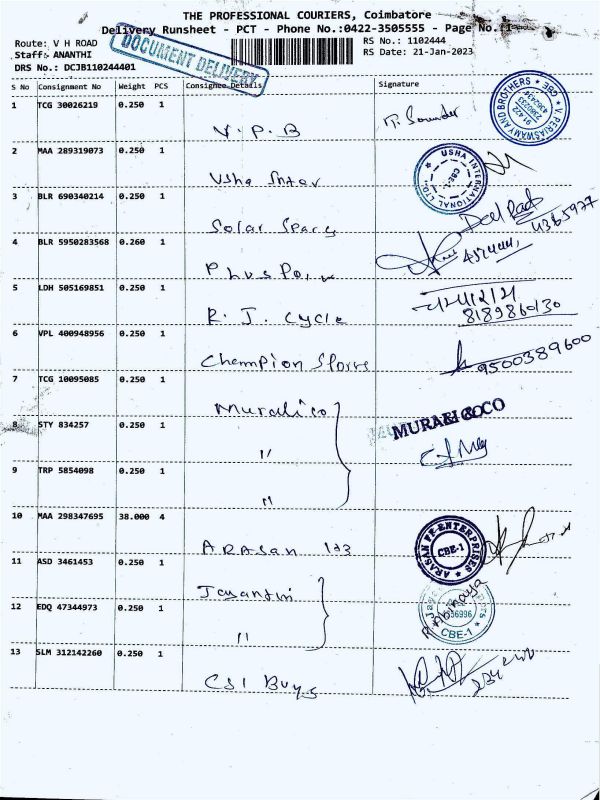 THE PROFESSIONAL COURIERS, Coimbatore
Delivery Runsheet - PCT - Phone No.:0422-3505555 - Page No.:1
Route: V H ROAD
RS No.: 1102444
Staff: ANANTHI
RS Date: 21-Jan-2023
DRS No.: DCJB110244401
DOCUMENT DELIVERY
S No Consignment No Weight PCS Consignee Details Signature
1 TCG 30026219 0.250 1 V.P.B
V. PERIASWAMY AND BROTHERS CBE
2 MAA 289319073 0.250 1 Usha Inter
USHA INTERNATIONAL LTD. CBE-1.
3 BLR 690340214 0.250 1 Solar Spares
4365977
4 BLR 5950283568 0.260 1 Plus Point
5 LDH 505169851 0.250 1 R. J. Cycle
8189860130
6 VPL 400948956 0.250 1 Champion Sports
9500389600
7 TCG 10095085 0.250 1 Murali co
MURALI & CO
8 STY 834257 0.250 1 "
9 TRP 5854098 0.250 1 "
10 MAA 298347695 38.000 4 ARASan
ARASAN ENTERPRISES CBE-1
11 ASD 3461453 0.250 1 Jayanthi
12 EDQ 47344973 0.250 1 "
CBE-1
13 SLM 312142260 0.250 1 CSI Buys